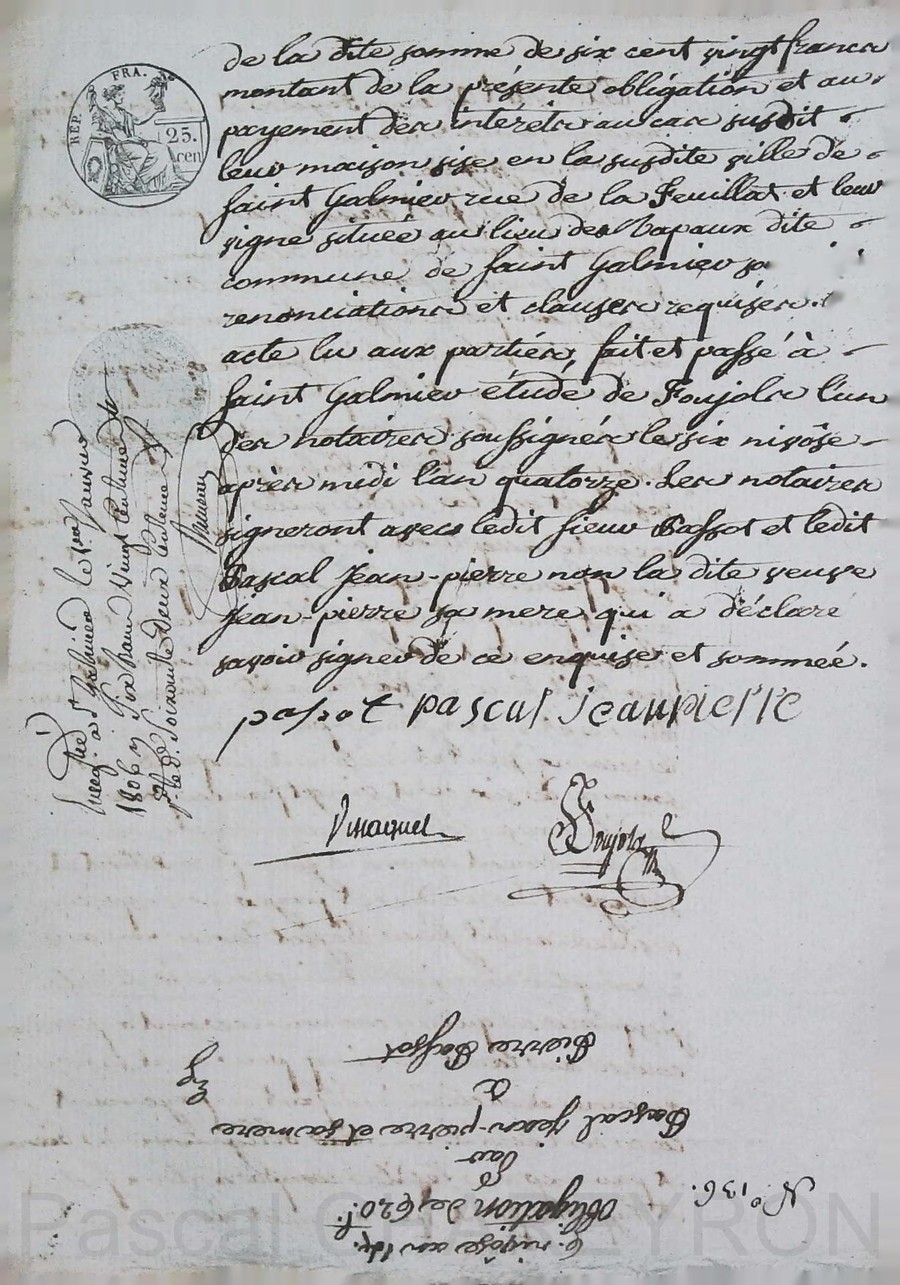 REP. FRA.
25.
cen
de la dite somme de six cent vingt francs
montant de la présente obligation et au
payement des intérêts au cas susdit
leur maison sise en la susdite ville de
saint Galmier rue de la Feuillat et leur
vigne située au lieu des Rapaux dite
commune de saint Galmier
renonciations et clauses requises.
acte lu aux parties, fait et passé à
saint Galmier étude de Foujols l'un
des notaires soussignés le six nivôse
après midi l'an quatorze. Les notaires
signeront avec ledit sieur Passot et ledit
Pascal Jean-pierre non la dite veuve
Jean-pierre sa mere qui a déclaré
savoir signer de ce enquise et sommée.
passot pascal jeanpierre
Foujols
Enregtré à St Galmier le 1er Janvier
1806
Six francs vingt centimes
Soixante deux centimes
6. nivôse an 14.
Obligation de 620 f
N.° 136.
par
Pascal Jean-pierre et sa mere
à
Pierre Passot
Pascal